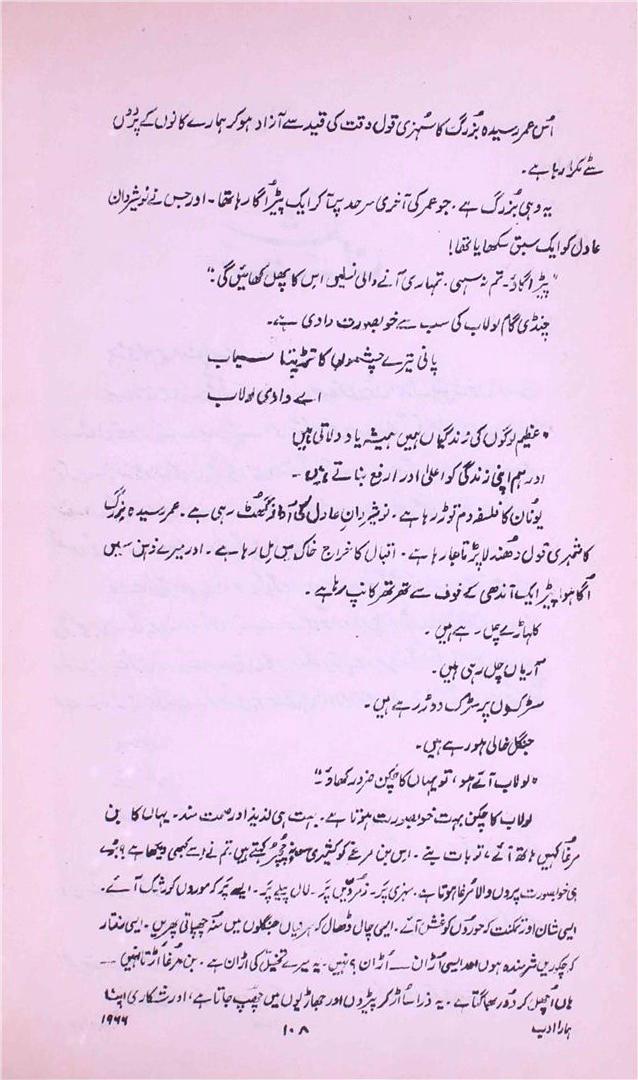 اُس عمر رسیدہ بزرگ کا سُنہری قول وقت کی قید سے آزاد ہو کر ہمارے کانوں کے پردوں
سے ٹکرا رہا ہے۔
یہ وہی بُزرگ ہے۔ جو عمر کی آخری سرحد پر آ کر ایک پیڑ اُگا رہا تھا۔ اور جس نے نوشیروان
عادل کو ایک سبق سکھایا تھا!
"پیڑ اُگاؤ۔ تم نہ سہی۔ تمہاری آنے والی نسلیں اس کا پھل کھائیں گی۔"
چنڈی گام لولاب کی سب سے خوبصورت وادی ہے۔
پانی تیرے چشموں کا تڑپتا سیماب
اے وادی لولاب
"عظیم لوگوں کی زندگیاں ہمیں ہمیشہ یاد دلاتی ہیں
اور ہم اپنی زندگی کو اعلیٰ اور ارفع بناتے ہیں۔
یونان کا فلسفہ دم توڑ رہا ہے۔ نوشیروانِ عادل کی آواز گھٹ رہی ہے۔ عمر رسیدہ بزرگ
کا سُنہری قول دُھندلا پڑتا جا رہا ہے۔ اقبال کا خراج خاک میں مل رہا ہے۔ اور میرے ذہن میں
اُگا ہوا پیڑ ایک آندھی کے خوف سے تھر تھر کانپ رہا ہے۔
کلہاڑے چل رہے ہیں۔
آریاں چل رہی ہیں۔
سڑکوں پر ٹرک دوڑ رہے ہیں۔
جنگل خالی ہو رہے ہیں۔
"لولاب آئے ہو، تو یہاں کا چکن ضرور کھاؤ۔"
لولاب کا چکن بہت خوبصورت ہوتا ہے۔ بہت ہی لذیذ اور صحت مند۔ یہاں کا بن
مرغا کہیں ہاتھ آئے، تو بات بنے۔ اس بن مرغے کو کشمیری میں کہتے ہیں تم نے اسے کبھی دیکھا ہے؟ بڑے
ہی خوبصورت پروں والا مرغا ہوتا ہے۔ سنہری پر۔ زمردیں پر۔ لال پیلے پر۔ ایسے پر کہ موروں کو رشک آئے۔
ایسی شان اور تمکنت کہ حوروں کو غش آئے۔ ایسی چال ڈھال کہ ہرنیاں جنگلوں میں منہ چھپاتی پھریں۔ ایسی رفتار
کہ چکوریں شرمندہ ہوں اور ایسی اُڑان — اُڑان؟ نہیں۔ یہ میرے تخیل کی اڑان ہے۔ بن مرغا اُڑتا نہیں —
ہاں اُچھل کر دُور بھاگتا ہے۔ یہ ذرا سا اُڑ کر پیڑوں اور جھاڑیوں میں چھپ جاتا ہے، اور شکاری اپنا
ہمارا ادب
۱۰۸